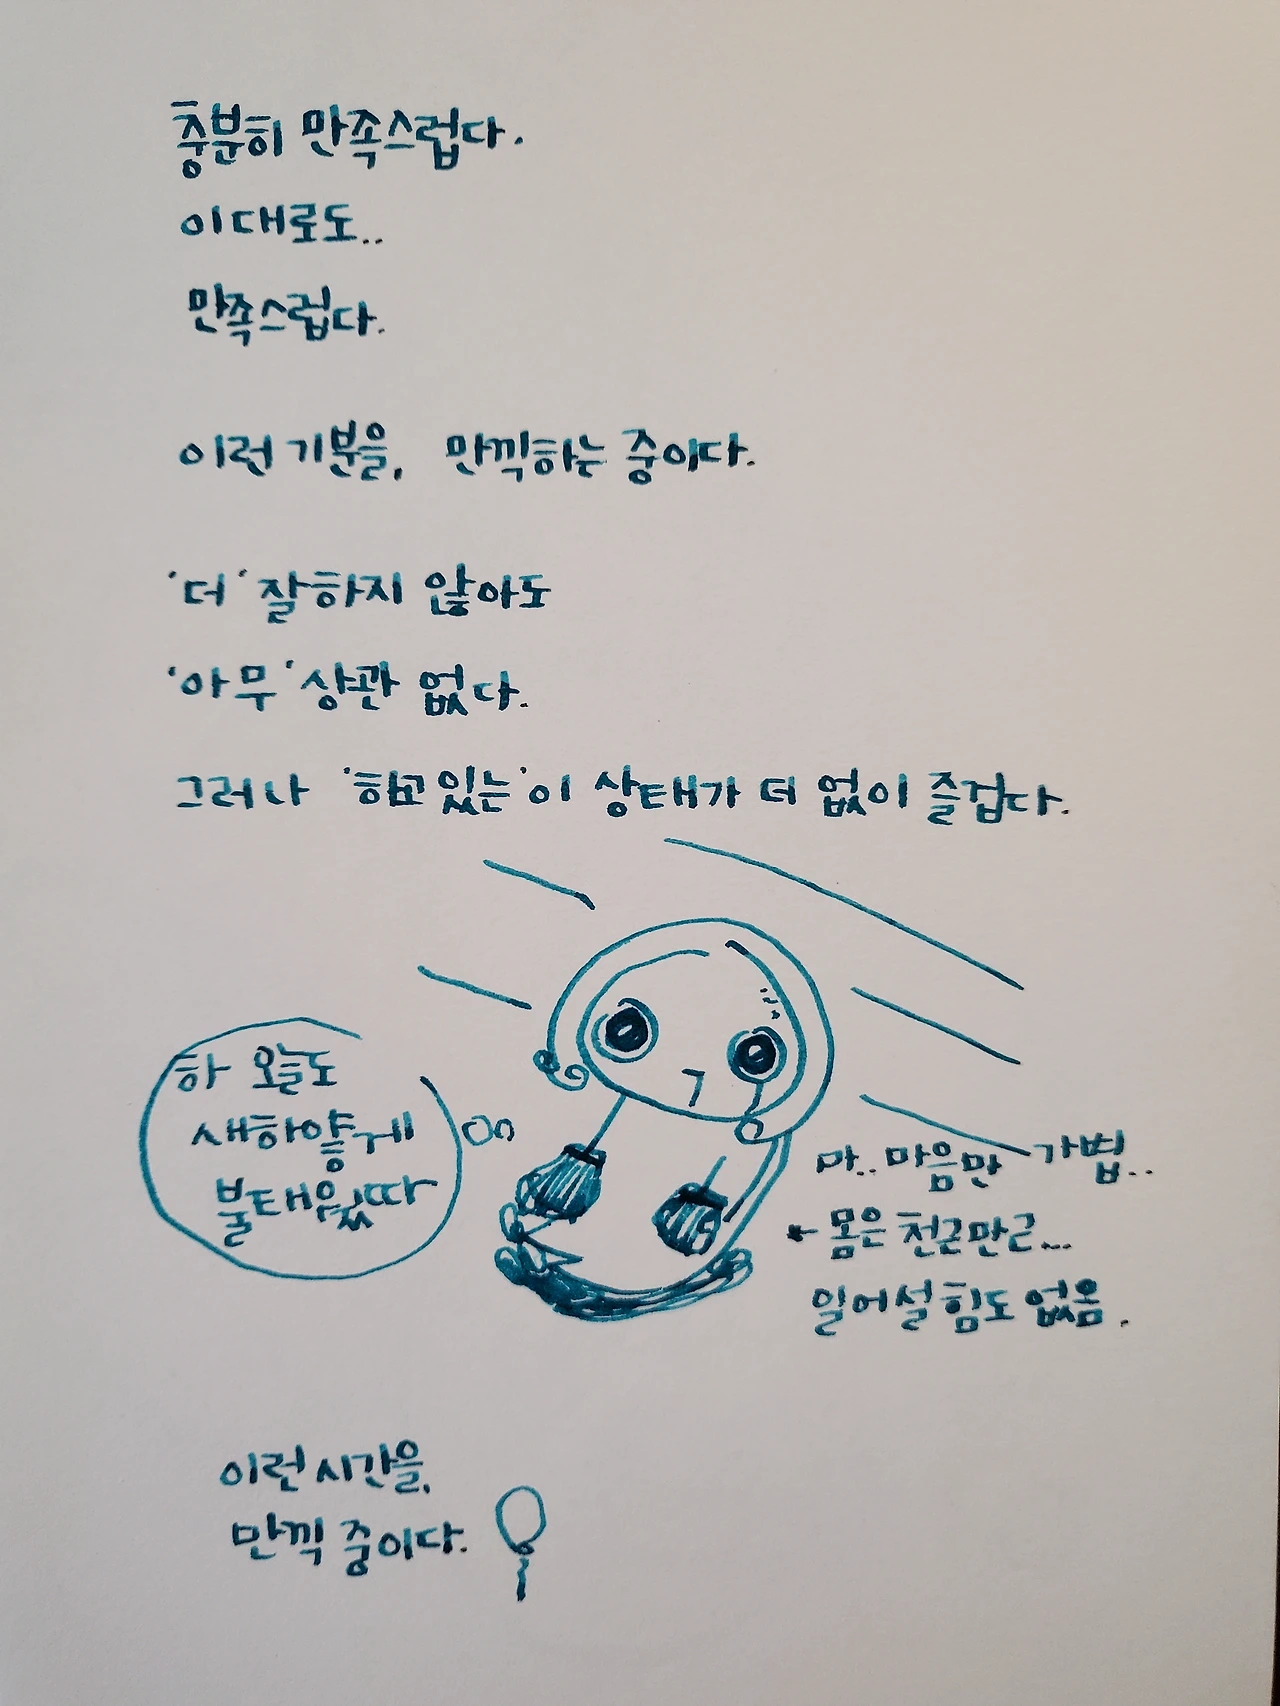 충분히 만족스럽다.
이대로도..
만족스럽다.
이런 기분을, 만끽하는 중이다.
'더' 잘하지 않아도
'아무' 상관 없다.
그러나 '하고 있는' 이 상태가 더 없이 즐겁다.
하 오늘도
새하얗게
불태웠따
마.. 마음만 가볍..
몸은 천근만근...
일어설 힘도 없음.
이런 시간을,
만끽 중이다.